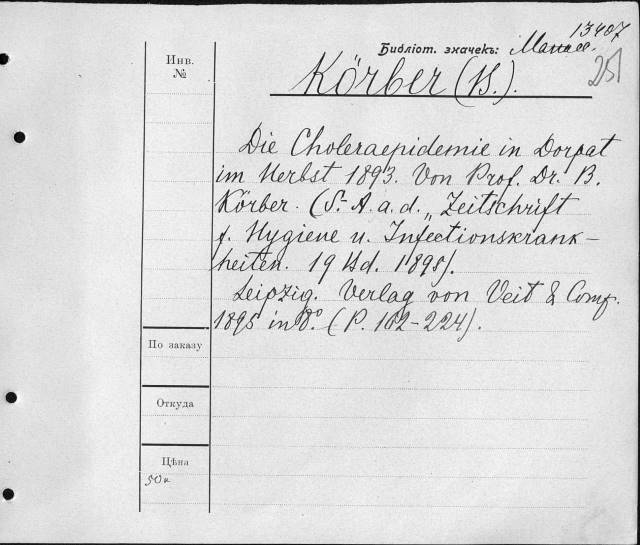 13407
Инв.
№
Библіот. значекъ:
251
Körber (B.).
Die Choleraepidemie in Dorpat
im Herbst 1893. Von Prof. Dr. B.
Körber. (S.-A. a. d. „Zeitschrift
f. Hygiene u. Infectionskrank-
heiten. 19 Bd. 1895).
Leipzig. Verlag von Veit & Comp.
1895 in 8° (P. 162-224).
По заказу
Откуда
Цѣна
50 к